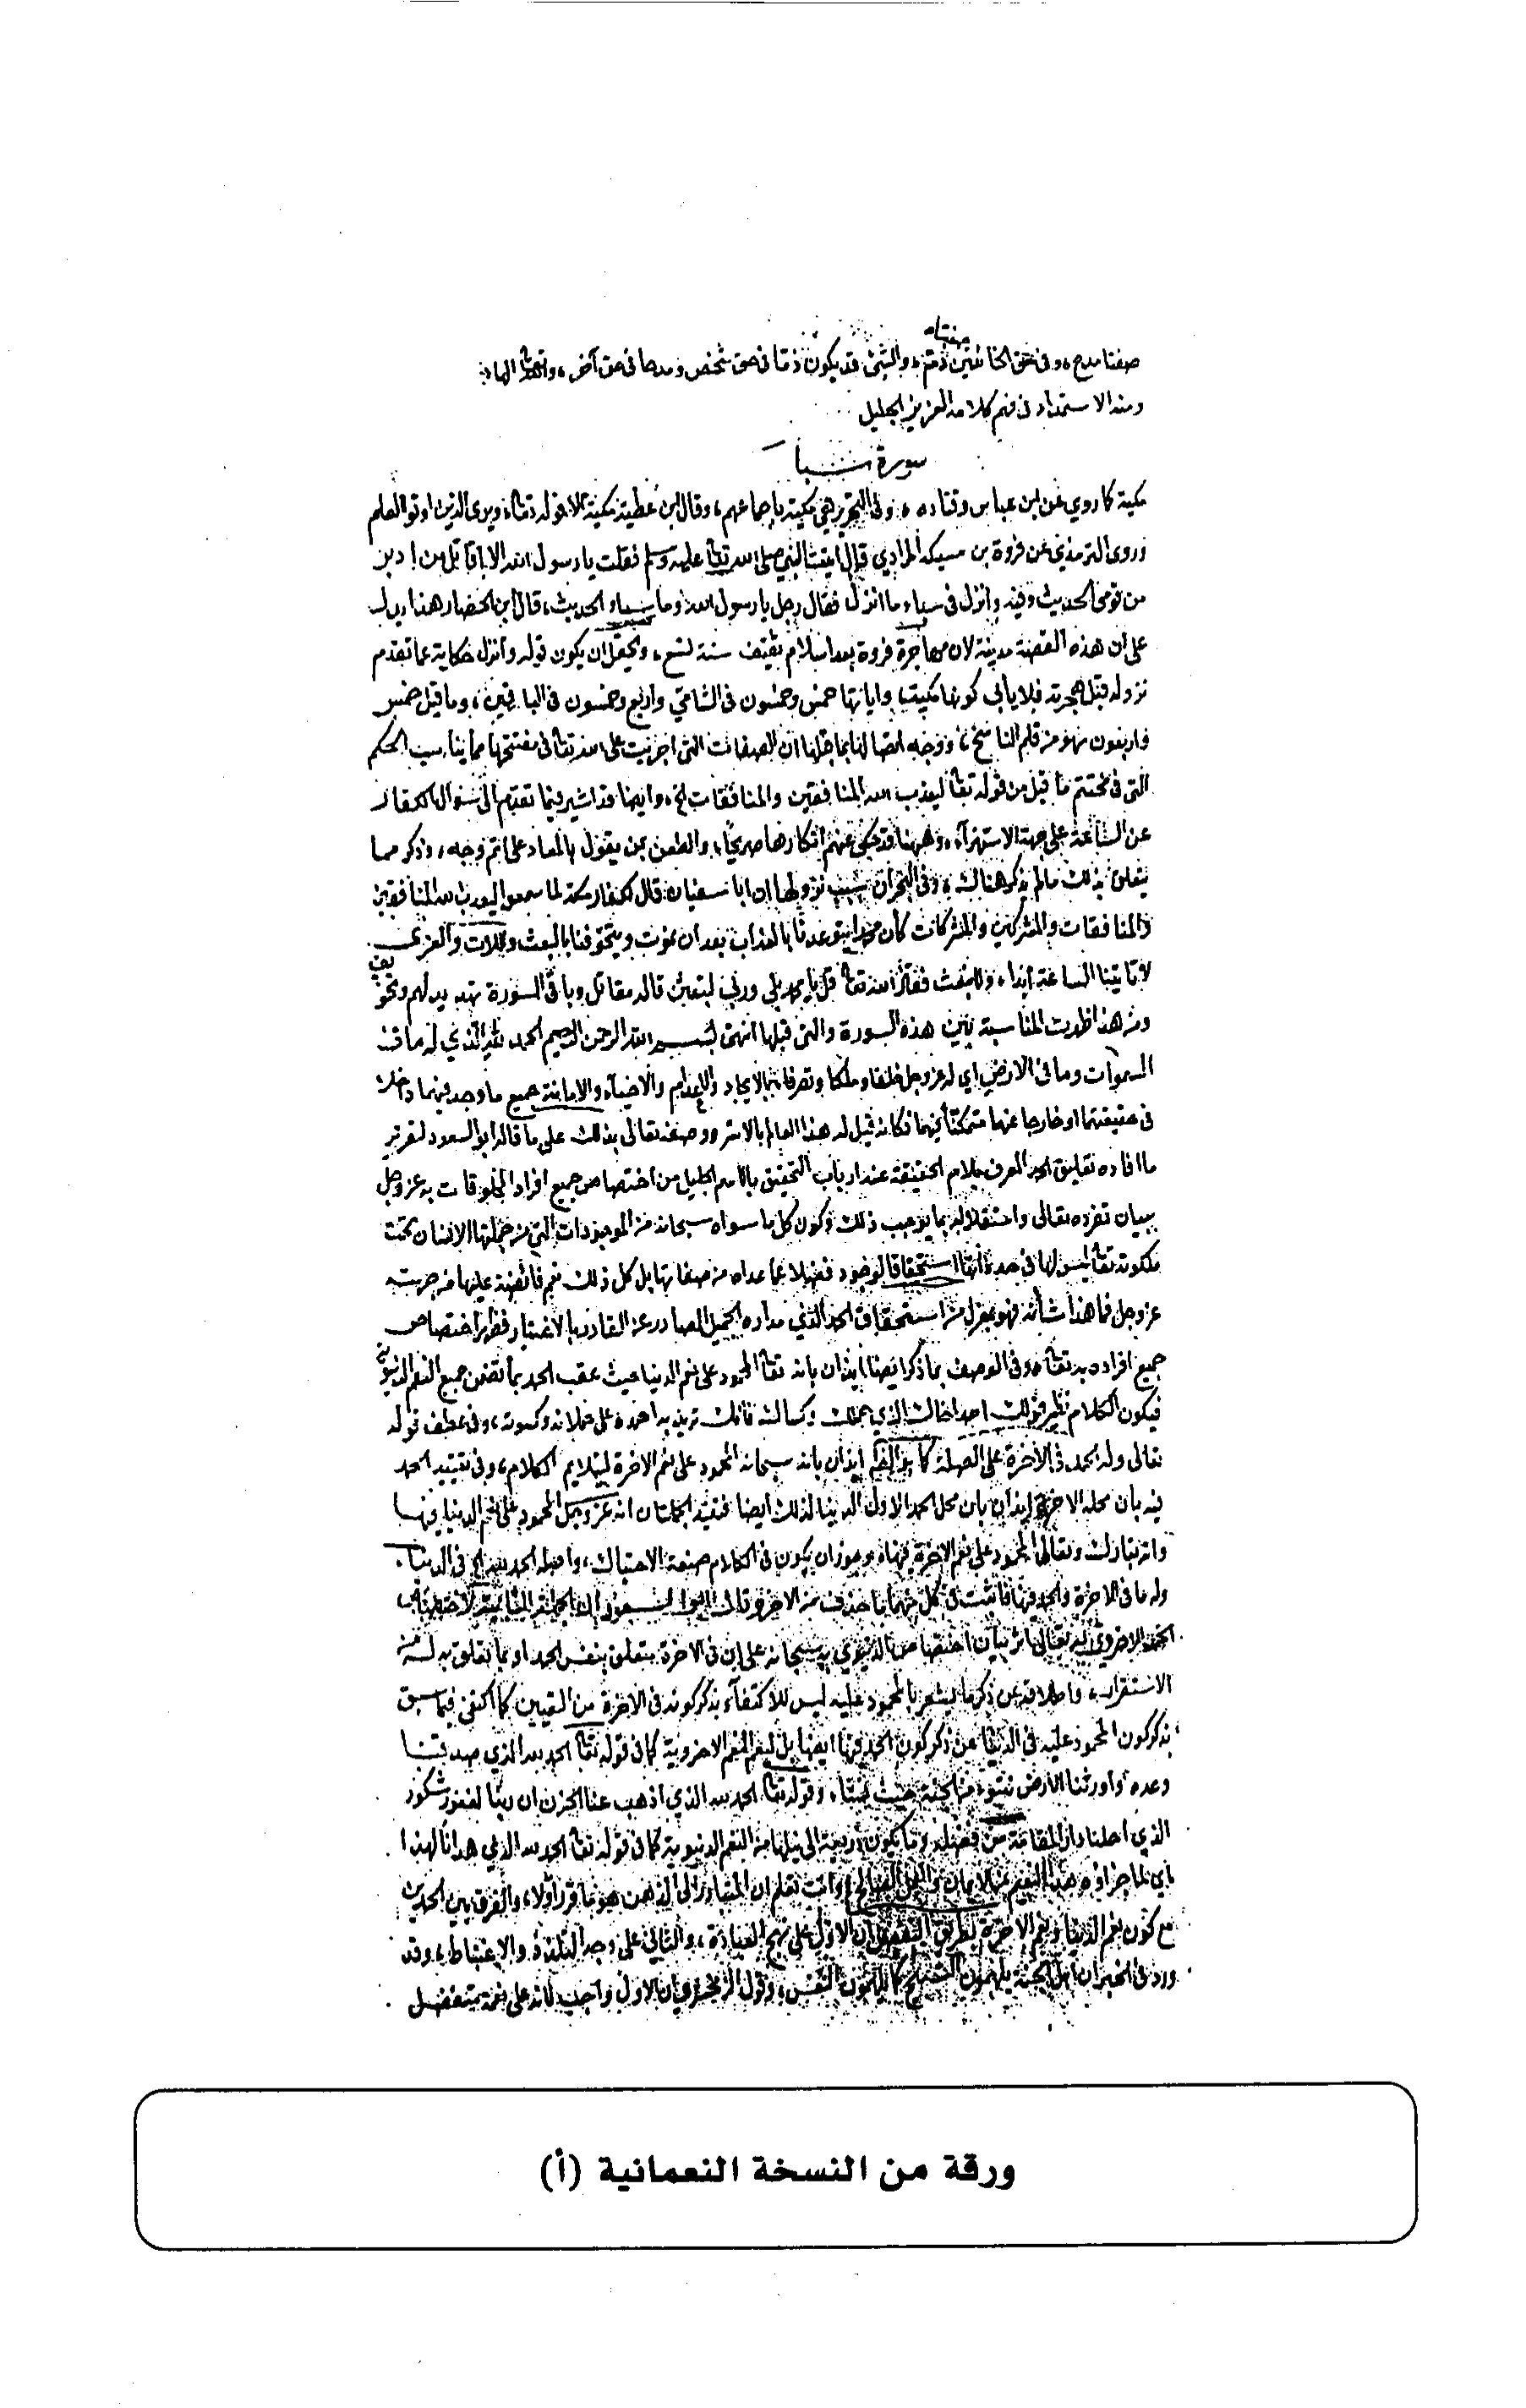 صفتا مدح، وفي حق الخائنين صفتا ذم، والشئ قد يكون ذما في حق شخص ومدحا في حق آخر، والله تعالى الهادي
ومنه الاستمداد في فهم كلامه العزيز الجليل
سورة سبأ
مكية كما روي عن ابن عباس وقتاده، وفي التحرير هي مكية بإجماعهم، وقال ابن عطية مكية الا قوله تعا ويرى الذين اوتوا العلم
وروى الترمذي عن فروة بن مسيكه المرادي قال اتيت النبي صلى الله تعا عليه وسلم فقلت يا رسول الله الا اقاتل من ادبر
من قومى الحديث وفيه وانزل في سباء ما انزل فقال رجل يا رسول الله وما سباء الحديث، قال ابن الحضار هذا يدل
على ان هذه القصة مدينة لان مهاجرة فروة بعد اسلام ثقيف سنة تسع، ويحتمل ان يكون قوله وانزل حكاية عما تقدم
نزوله قبل هجرته فلا يأبى كونها مكية، واياتها خمس وخمسون في الشامي واربع وخمسون في الباقين، وما قيل خمس
واربعون سهو من قلم الناسخ، ووجه اتصالها بما قبلها ان الصفات التي اجريت على الله تعا في مفتتحها مما يناسب الحكم
التي في مختتم ما قبل من قوله تعا ليعذب الله المنافقين والمنافقات الخ، وايضا قد اشير فيما تقدم الى سؤال الكفار
عن الساعة على جهة الاستهزاء، وههنا قد حكى عنهم انكارها صريحا، والطعن بمن يقول بالمعاد على اتم وجه، وذكر مما
يتعلق بذلك ما لم يذكر هناك، وفي البحر ان سبب نزولها ان ابا سفيان قال لكفار مكة لما سمعوا ليعذب الله المنافقين
والمنافقات والمشركين والمشركات كأن محمدا يتوعدنا بالعذاب بعد ان نموت ويتخوفنا بالبعث واللات والعزى
لا تأتينا الساعة ابدا، ولا نبعث فقال الله تعا قل يا محمد بلى وربي لتبعثن قاله مقاتل وباقي السورة تهديد لهم وتخويف
ومن هذا ظهرت المناسبة بين هذه السورة والتي قبلها انتهى بسم الله الرحمن الرحيم الحمد لله الذي له ما في
السموات وما في الارض اي له عز وجل خلقا وملكا وتصرفا بالايجاد والاعدام والاحياء والاماتة جميع ما وجد فيهما داخلا
في حقيقتهما او خارجا عنهما متمكنا فيهما فكانه قيل له هذا العالم بالاسر ووصفه تعالى بذلك على ما قاله ابو السعود لتقرير
ما افاده تعليق الحمد المعرف بلام الحقيقة عند ارباب التحقيق بالاسم الجليل من اختصاص جميع افراد المخلوقات به عز وجل
ببيان تفرده تعالى واستقلاله بما يوجب ذلك وكون كل ما سواه سبحانه من الموجودات التي من جملتها الانسان تحت
ملكوته تعا ليس لها في حد ذاتها استحقاق الوجود فضلا عما عداه من صفاتها بل كل ذلك نعم فائضة عليها من جهته
عز وجل فما هذا شأنه فهو بمعزل من استحقاق الحمد الذي مداره الجميل الصادر عن القادر بالاختيار فظهر اختصاص
جميع افراده به تعا، وفي الوصف بما ذكر ايضا ايذان بانه تعا المحمود على نعم الدنيا حيث عقب الحمد بما تضمن جميع النعم الدنيوية
فيكون الكلام نظير قولك احمد اخاك الذي حملك وكساك فانك تريد به احمده على حملانه وكسوته، وفي عطف قوله
تعالى وله الحمد في الآخرة على الصلة ايذان بانه سبحانه المحمود على نعم الاخرة ليتلايم الكلام، وفي تقييد الحمد
فيه بان محله الاخرة ايذان بان محل الحمد الاول الدنيا لذلك ايضا فتفيد الجملتان انه عز وجل المحمود على نعم الدنيا فيها
وانه تبارك وتعالى المحمود على نعم الاخرة فيها، وجوز ان يكون في الكلام صنعة الاحتباك، واصله الحمد لله الخ في الدنيا
وله ما في الاخرة والحمد فيها فاثبت في كل منهما ما حذف من الاخر وقال ابو السعود ان الجملة الثانية لاختصاص
الحمد الاخروي به تعالى اثر بيان اختصاص الدنيوي به سبحانه على ان في الاخرة متعلق بنفس الحمد او بما تعلق به له من
الاستقرار، واطلاقه عن ذكر ما يشعر بالمحمود عليه ليس للاكتفاء بذكر كونه في الاخرة من التعيين كما اكتفى فيما سبق
بذكر كون المحمود عليه في الدنيا عن ذكر كون الحمد فيها ايضا بل ليعم النعم الاخروية كما في قوله تعا الحمد لله الذي صدقنا
وعده واورثنا الارض نتبوء من الجنة حيث نشاء، وقوله تعا الحمد لله الذي اذهب عنا الحزن ان ربنا لغفور شكور
الذي احلنا دار المقامة من فضله وما يكون ذريعة الى نيلها من النعم الدنيوية كما في قوله تعا الحمد لله الذي هدانا لهذا
اي لما جزاؤه هذا النعيم من الايمان والعمل الصالح وانت تعلم ان المتبادر الى الذهن هو ما قرر اولا، والفرق بين الحمدين
مع كون نعم الدنيا ونعم الاخرة بطريق التفضل ان الاول على نهج العبادة، والثاني على وجه التلذذ والاغتباط، وقد
ورد في الخبر ان اهل الجنة يلهمون التسبيح كما يلهمون النفس، وقول الزمخشري ان الاول واجب لانه على نعمة متفضل
ورقة من النسخة النعمانية (أ)